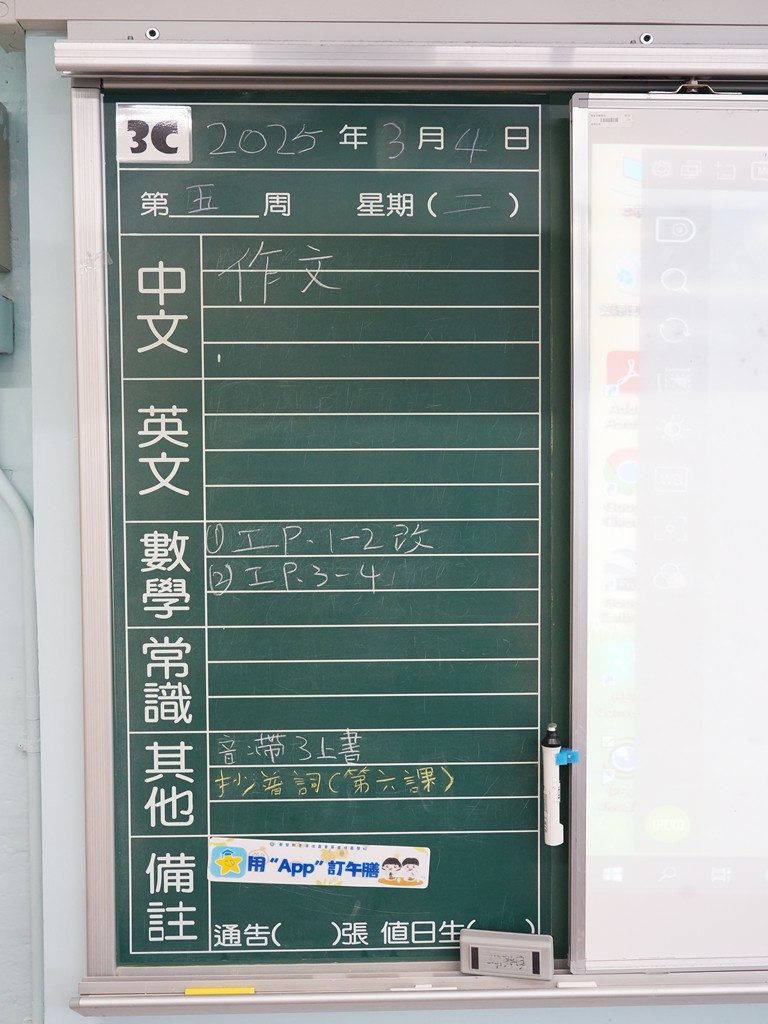 3C 2025 年 3 月 4 日
第 五 周 星期 ( 二 )
中文
作文
英文
數學
(1) 工 P.1-2 改
(2) 工 P.3-4
常識
其他
音:帶 3上書
抄普詞(第六課)
備註
用“App”訂午膳
通告( )張 值日生( )
WB